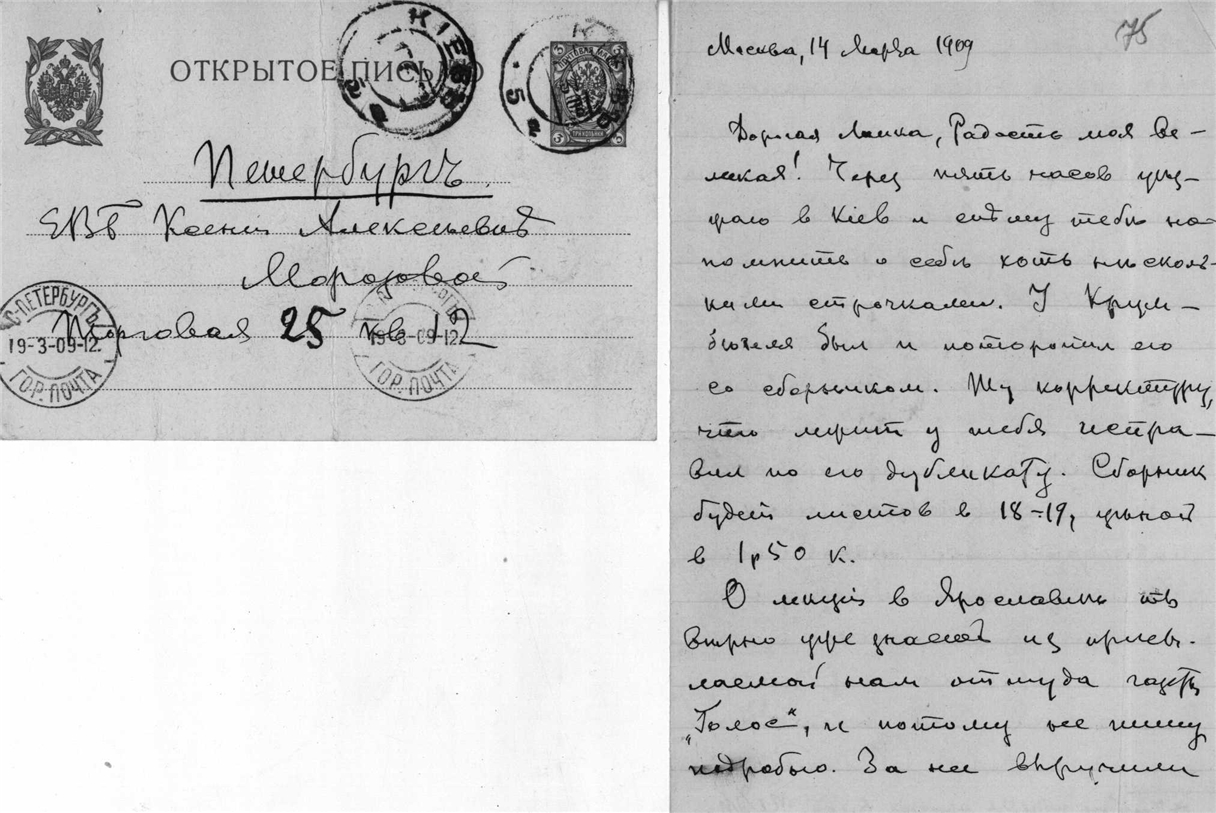 ОТКРЫТОЕ ПИСЬМО
КІЕВЪ
5
Петербургъ.
ЕВБ Ксеніи Алексѣевнѣ
Морозовой
Торговая 25 кв 12
С-ПЕТЕРБУРГЪ
19-3-09-12
ГОР. ПОЧТА
19-3-09-12
ГОР. ПОЧТА
75
Москва, 14 Марта 1909
Дорогая Ланка, Радость моя ве-
ликая! Через пять часов уѣз-
жаю в Кіев и спѣшу тебѣ на-
помнить о себѣ хоть нѣсколь-
кими строчками. У Крум-
бюгеля был и поторопил его
со сборником. Ту корректуру,
что лежит у тебя испра-
вил по его дубликату. Сборник
будет листов в 18-19, цѣной
в 1р 50 к.
О лекціи в Ярославлѣ ты
вѣрно уже знаешь из присы-
лаемой нам оттуда газеты
„Голос“, и потому не пишу
подробно. За нее выручили